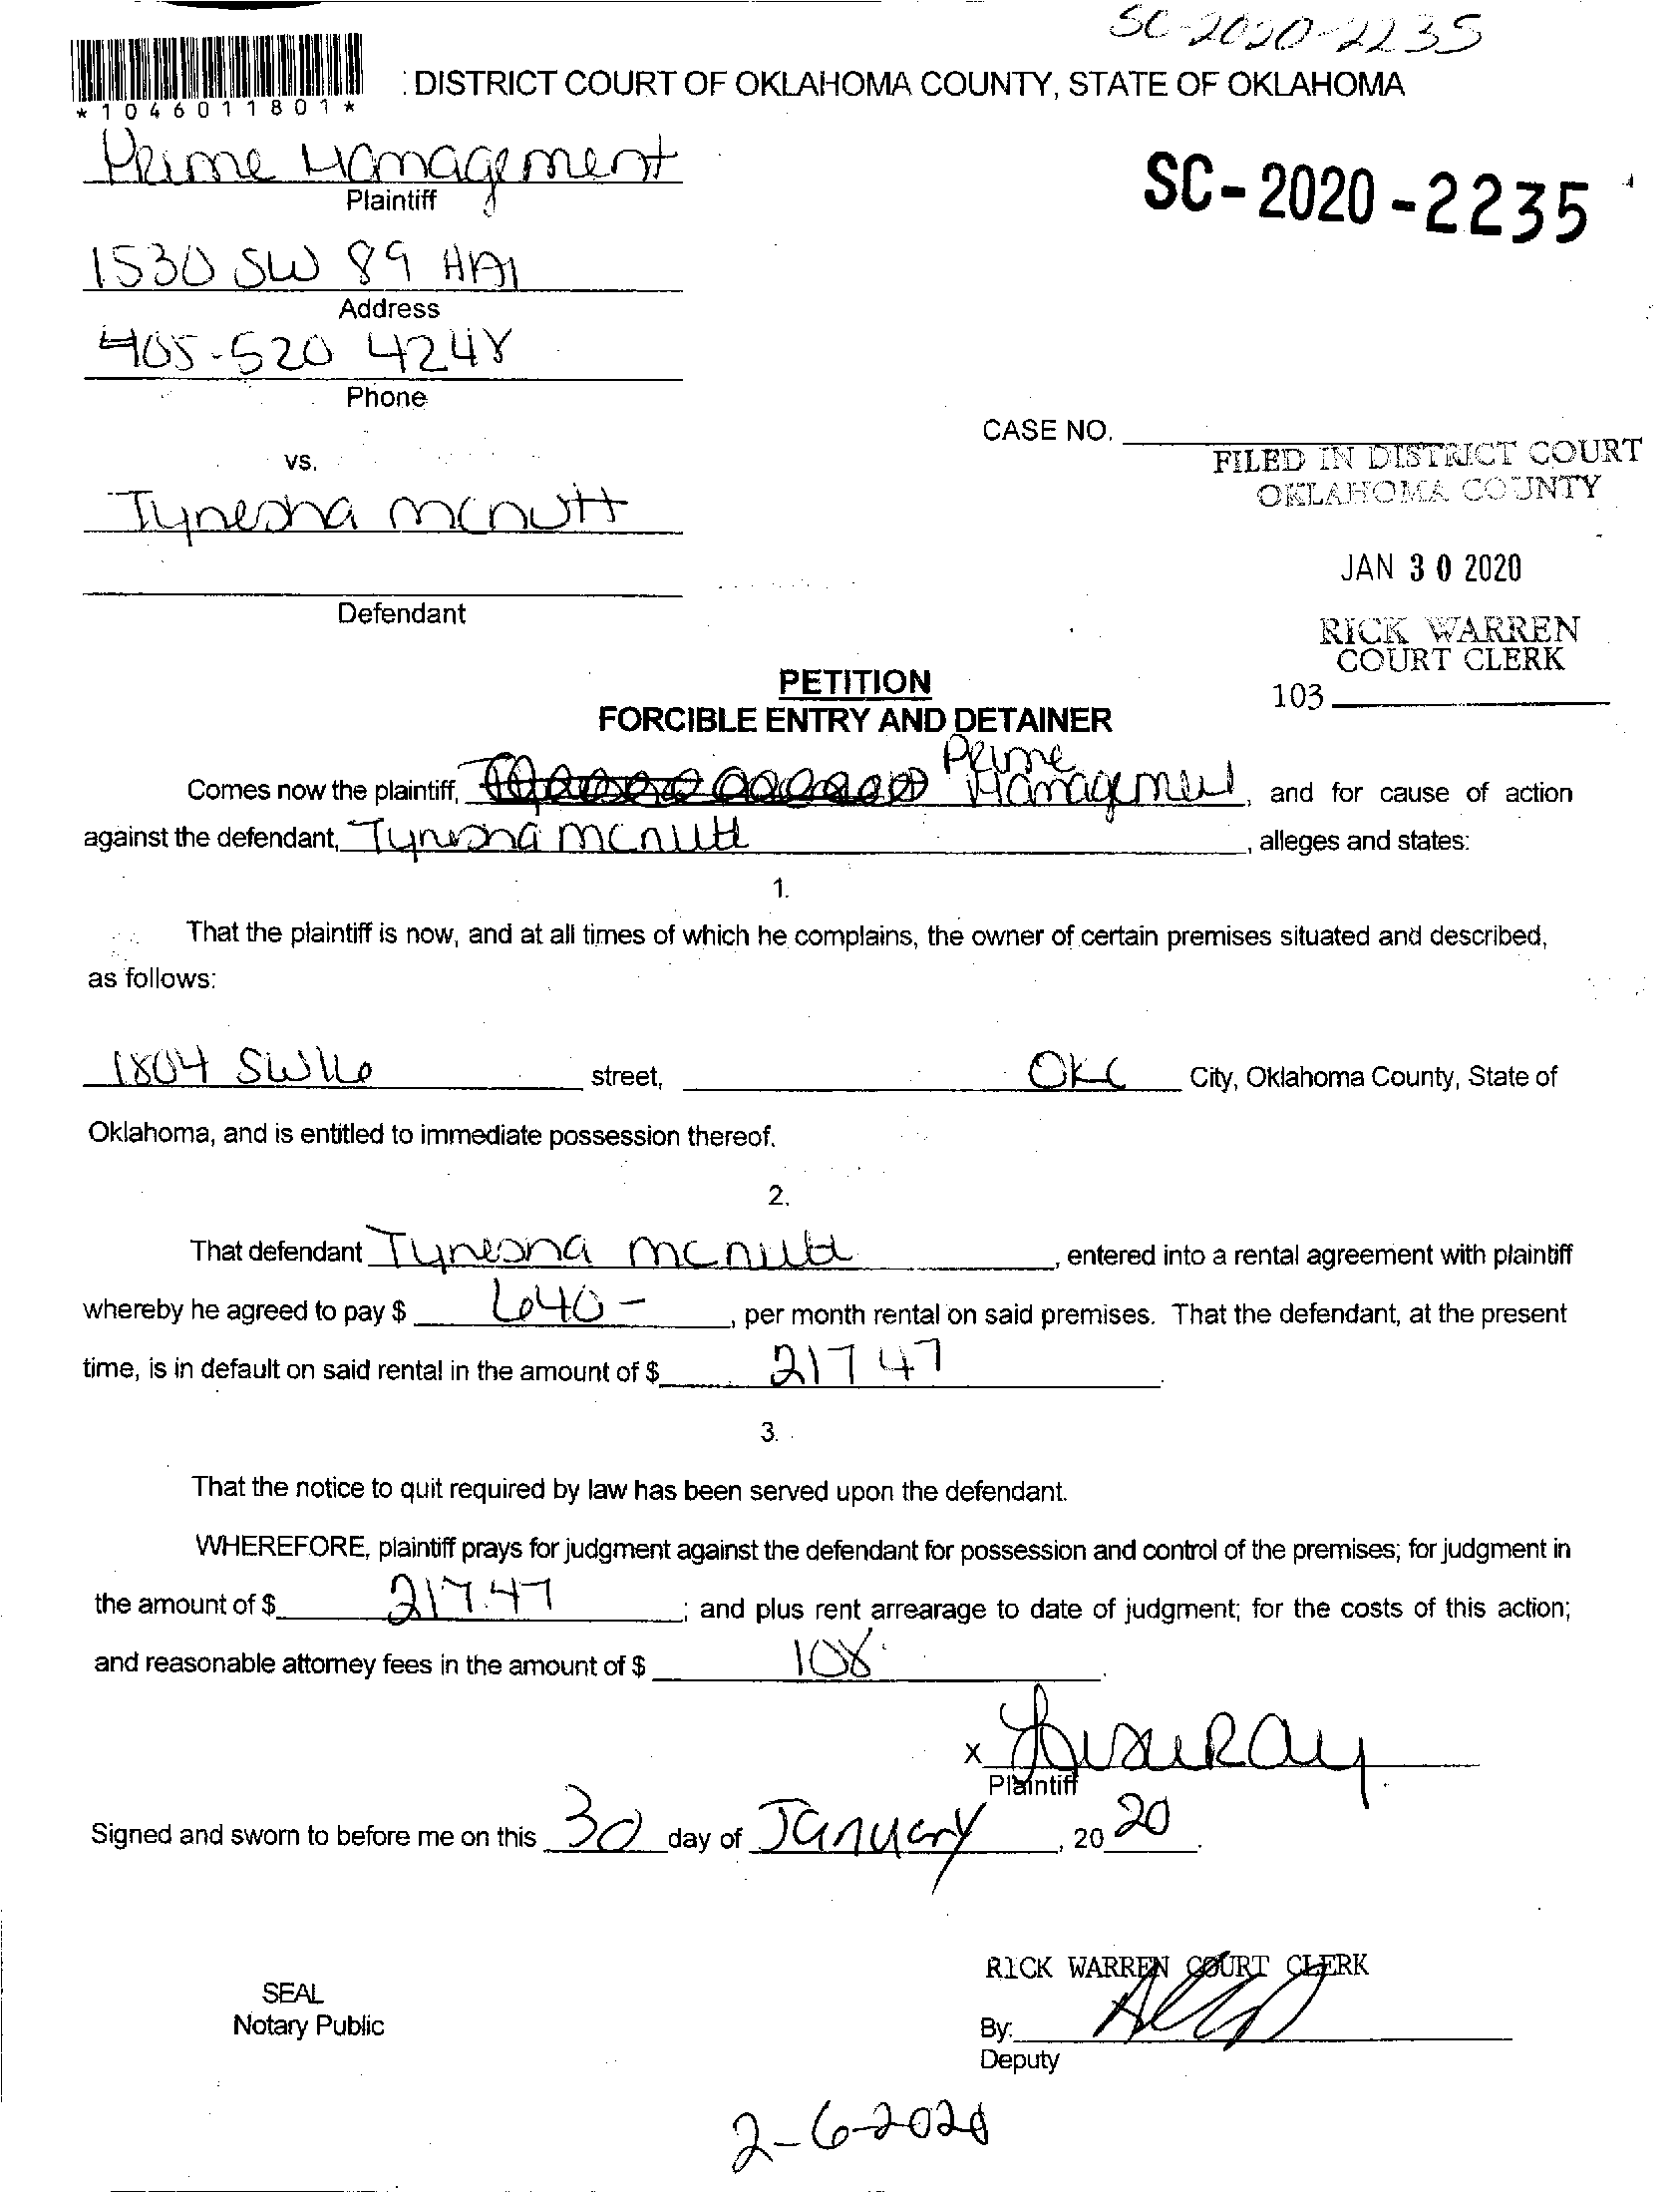 SC-2020-2235
*1046011801*
: DISTRICT COURT OF OKLAHOMA COUNTY, STATE OF OKLAHOMA
Prime Management
Plaintiff
SC-2020-2235
1530 SW 89 #A1
Address
405-520 4248
Phone
CASE NO.
vs.
FILED IN DISTRICT COURT
OKLAHOMA COUNTY
Tynesha mcnutt
JAN 30 2020
Defendant
RICK WARREN
COURT CLERK
103
PETITION
FORCIBLE ENTRY AND DETAINER
Comes now the plaintiff, Prime Management, and for cause of action
against the defendant, Tynesha mcnutt, alleges and states:
1.
That the plaintiff is now, and at all times of which he complains, the owner of certain premises situated and described,
as follows:
1804 SW 16 street, OKC City, Oklahoma County, State of
Oklahoma, and is entitled to immediate possession thereof.
2.
That defendant Tynesha mcnutt, entered into a rental agreement with plaintiff
whereby he agreed to pay $ 640-, per month rental on said premises. That the defendant, at the present
time, is in default on said rental in the amount of $ 217 47.
3.
That the notice to quit required by law has been served upon the defendant.
WHEREFORE, plaintiff prays for judgment against the defendant for possession and control of the premises; for judgment in
the amount of $ 217.47; and plus rent arrearage to date of judgment; for the costs of this action;
and reasonable attorney fees in the amount of $ 108.
x
Plaintiff
Signed and sworn to before me on this 30 day of January, 20 20.
RICK WARREN COURT CLERK
SEAL
Notary Public
By:
Deputy
2-6-2020